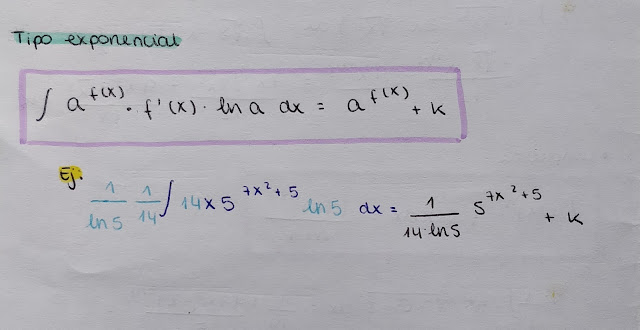 Tipo exponencial
∫ a^f(x) · f'(x) · ln a dx = a^f(x) + k
Ej.
1/ln5 1/14 ∫ 14x 5^7x²+5 ln5 dx = 1/14·ln5 5^7x²+5 + k